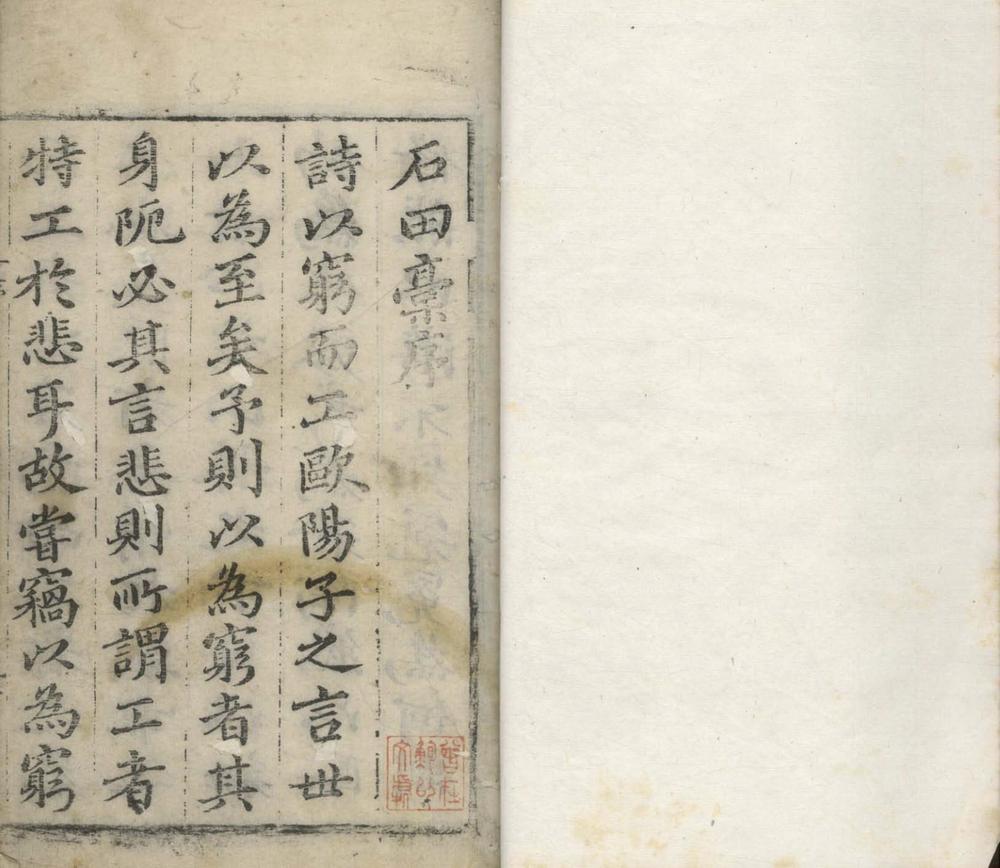 石田藁序
詩以窮而工歐陽子之言世
以為至矣予則以為窮者其
身阨必其言悲則所謂工者
特工於悲耳故嘗竊以為窮